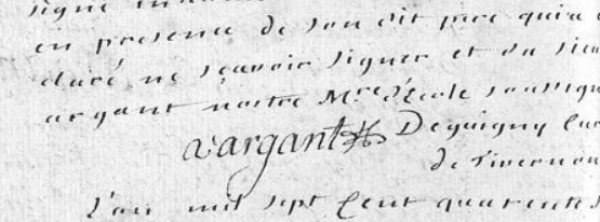 signé
en presence de son dit pere qui a
claré ne sçavoir signer et du sieu
argant nostre M.re d'Ecole soussign
a. argant Deguigny Cur
de tivernon
L'an mil sept Cent quarente s